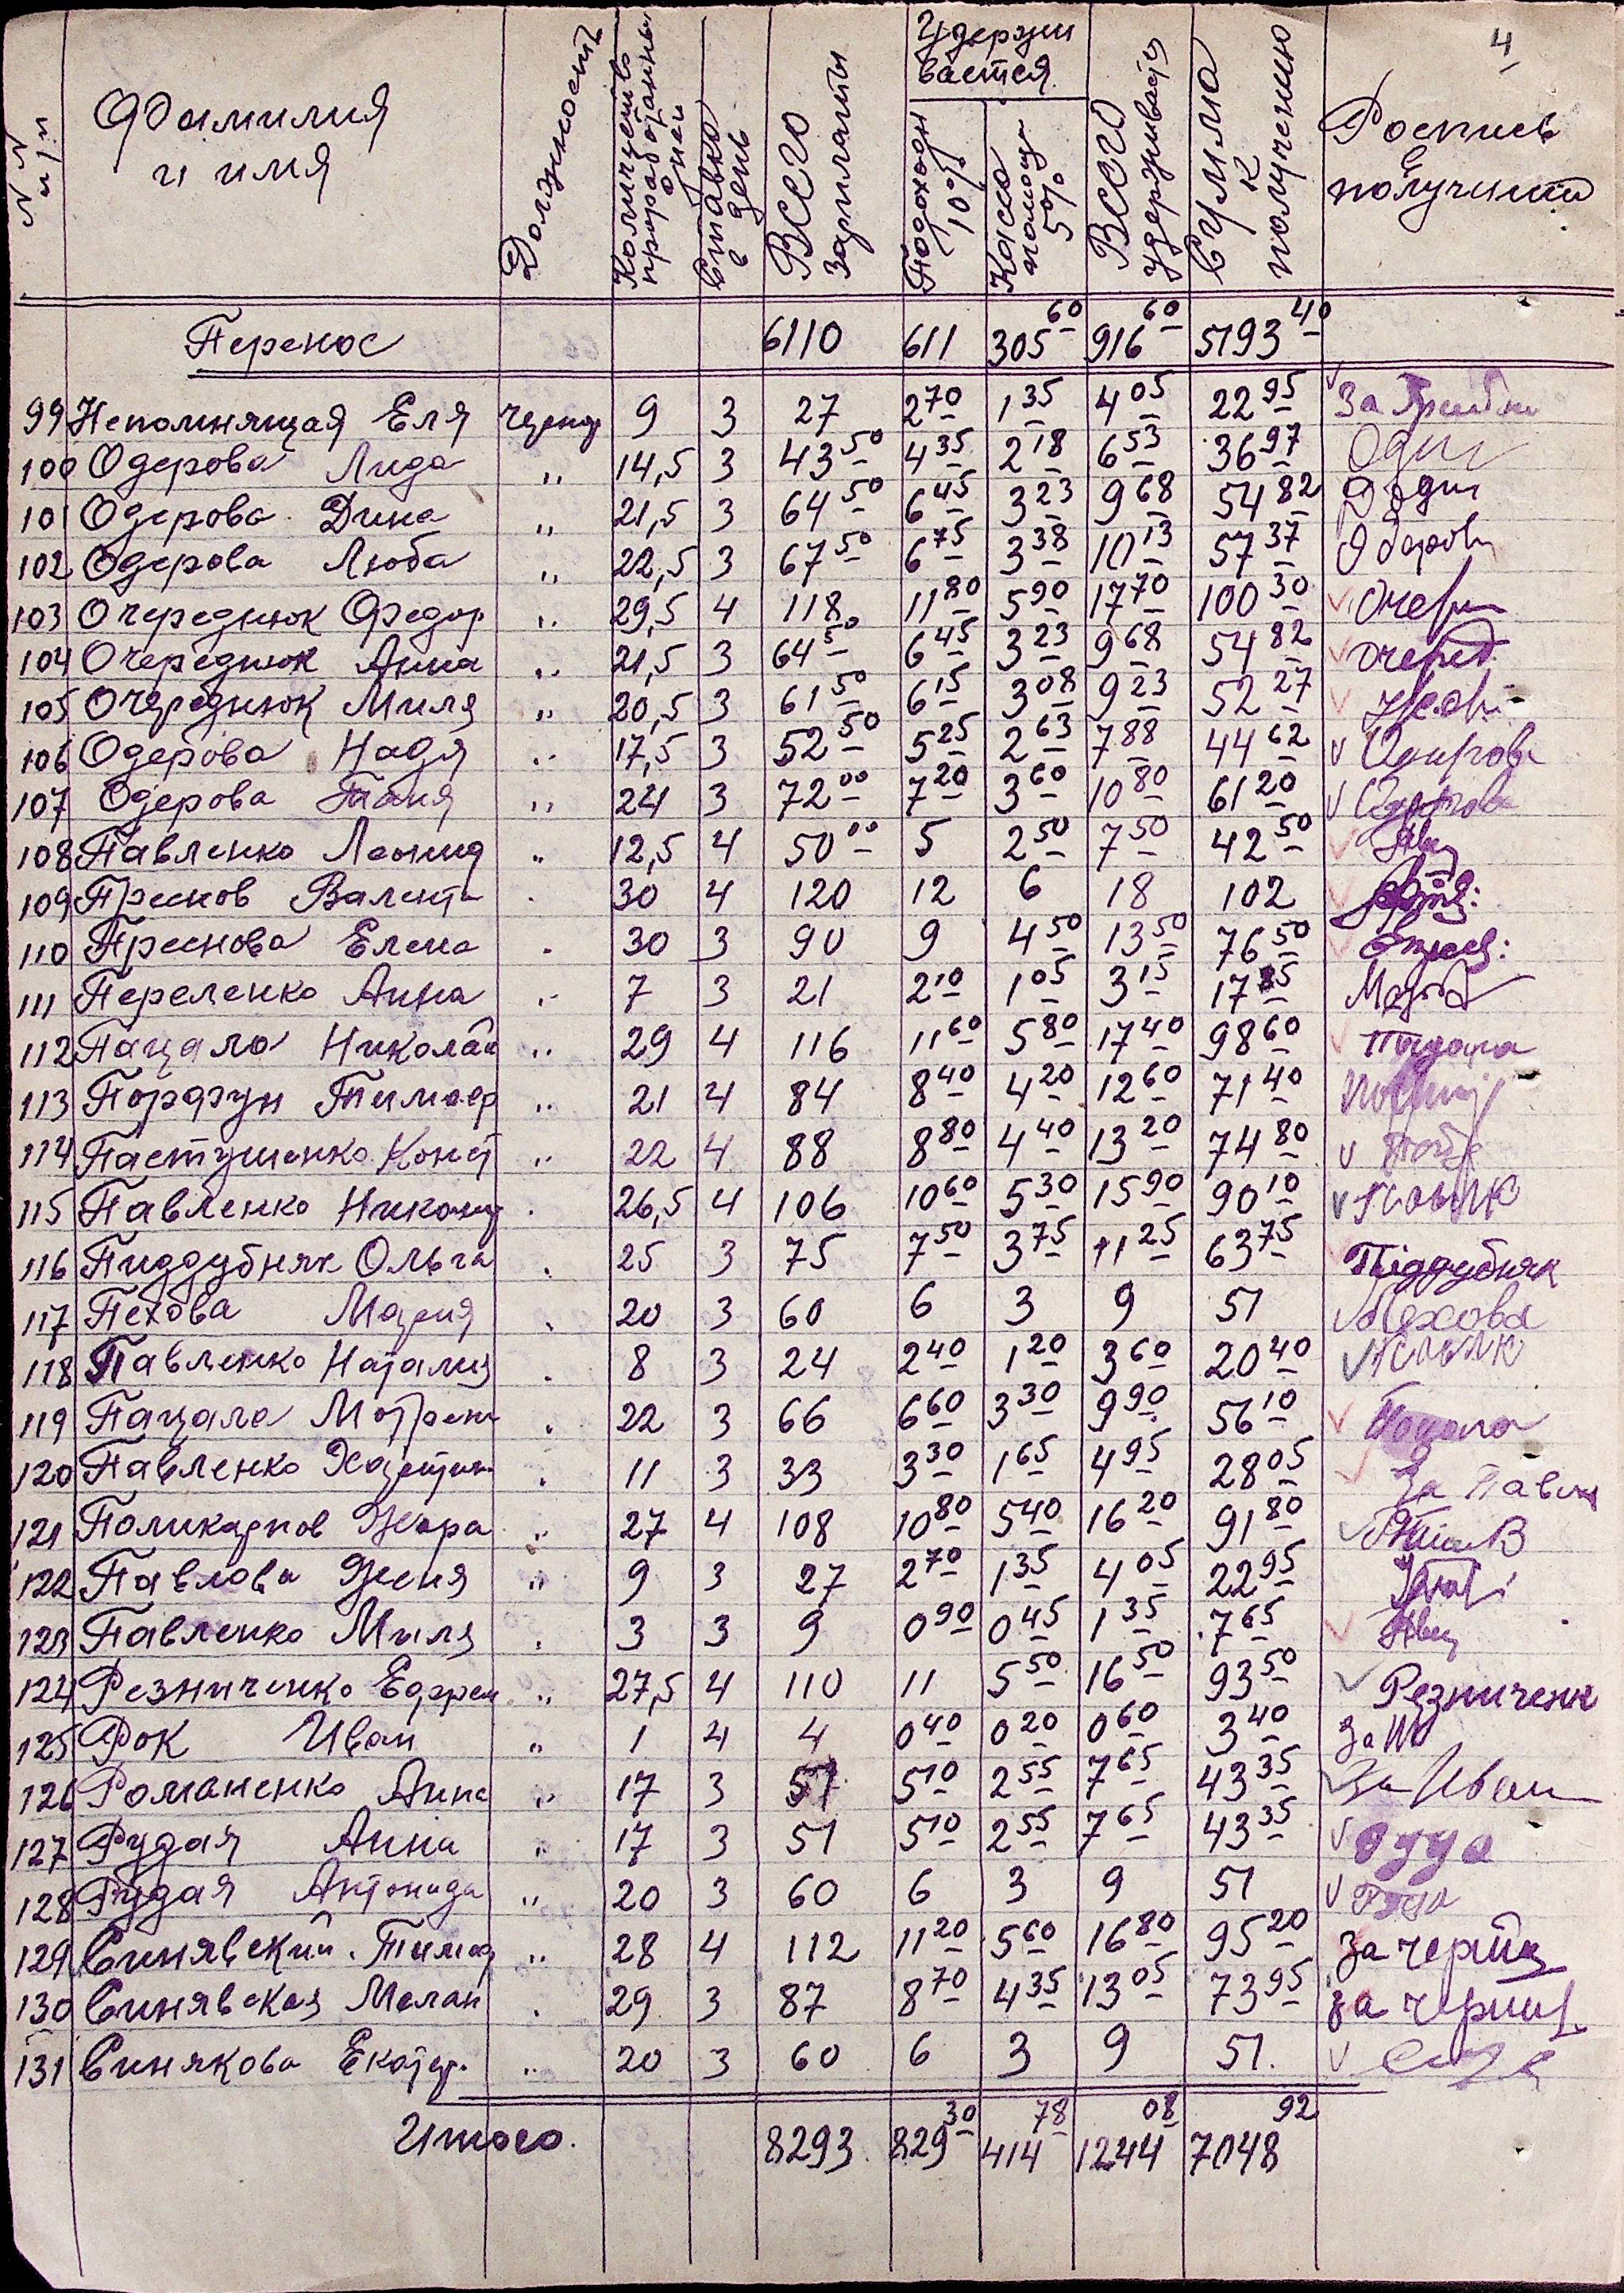 4
№№ п/п Фамилия и имя Должность Количество проработанны дней Ставка в день Всего зарплаты Удержи вается Подоходн 10% Касса помощи 5% Всего удерживаетс Сумма к получению Роспись в получении
Перенос 6110 611 305 60 916 60 5193 40
99 Непомнящая Еля 9 3 27 2 70 1 35 4 05 22 95 За
100 Одерова Лида „ 14,5 3 43 50 4 35 2 18 6 53 36 97
101 Одерова Дина „ 21,5 3 64 50 6 45 3 23 9 68 54 82
102 Одерова Люба „ 22,5 3 67 50 6 75 3 38 10 13 57 37
103 Очереднюк Федор „ 29,5 4 118 11 80 5 90 17 70 100 30
104 Очереднюк Анна „ 21,5 3 64 50 6 45 3 23 9 68 54 82 Очеред.
105 Очереднюк Миля „ 20,5 3 61 50 6 15 3 08 9 23 52 27
106 Одерова Надя „ 17,5 3 52 50 5 25 2 63 7 88 44 62
107 Одерова Таня „ 24 3 72 00 7 20 3 60 10 80 61 20
108 Павленко Леонид „ 12,5 4 50 00 5 2 50 7 50 42 50
109 Преснов Валент „ 30 4 120 12 6 18 102
110 Преснова Елена „ 30 3 90 9 4 50 13 50 76 50
111 Переленко Анна „ 7 3 21 2 10 1 05 3 15 17 85
112 Пацало Николай „ 29 4 116 11 60 5 80 17 40 98 60
113 Порфун Тимофр „ 21 4 84 8 40 4 20 12 60 71 40
114 Пастушенко Конст „ 22 4 88 8 80 4 40 13 20 74 80
115 Павленко „ 26,5 4 106 10 60 5 30 15 90 90 10
116 Пиддубняк Ольга „ 25 3 75 7 50 3 75 11 25 63 75 Піддубняк
117 Пехова Мария „ 20 3 60 6 3 9 51 Пехова
118 Павленко Наталия „ 8 3 24 2 40 1 20 3 60 20 40
119 Пацало Мотрен „ 22 3 66 6 60 3 30 9 90 56 10
120 Павленко Харетин „ 11 3 33 3 30 1 65 4 95 28 05 За Павлен
121 Поликарпов Жора „ 27 4 108 10 80 5 40 16 20 91 80
122 Павлова Женя „ 9 3 27 2 70 1 35 4 05 22 95
123 Павленко Миля „ 3 3 9 0 90 0 45 1 35 7 65
124 Резниченко Ефрем „ 27,5 4 110 11 5 50 16 50 93 50 Резниченк
125 Рок Иван „ 1 4 4 0 40 0 20 0 60 3 40 За
126 Романенко Анна „ 17 3 51 5 10 2 55 7 65 43 35 За Иван
127 Рудая Анна „ 17 3 51 5 10 2 55 7 65 43 35
128 Рудая Антонида „ 20 3 60 6 3 9 51
129 Синявский Тимоф „ 28 4 112 11 20 5 60 16 80 95 20 За
130 Синявская Мелан „ 29 3 87 8 70 4 35 13 05 73 95 За
131 Синякова Екатер. „ 20 3 60 6 3 9 51.
Итого. 8293 829 30 414 78 1244 08 7048 92